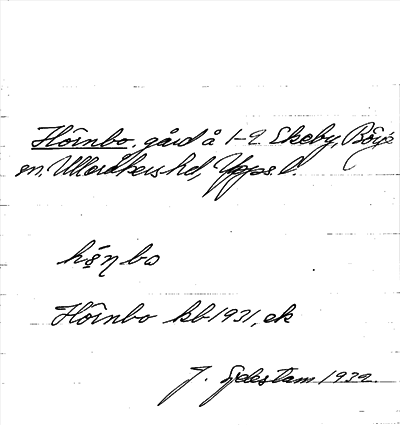 Hörnbo, gård å 1-2 Skeby, Börje
sn, Ulleråkers hd, Upps. l.
hö̀ņbo
Hörnbo kb 1931, ek
J. Sjdestam 1932.